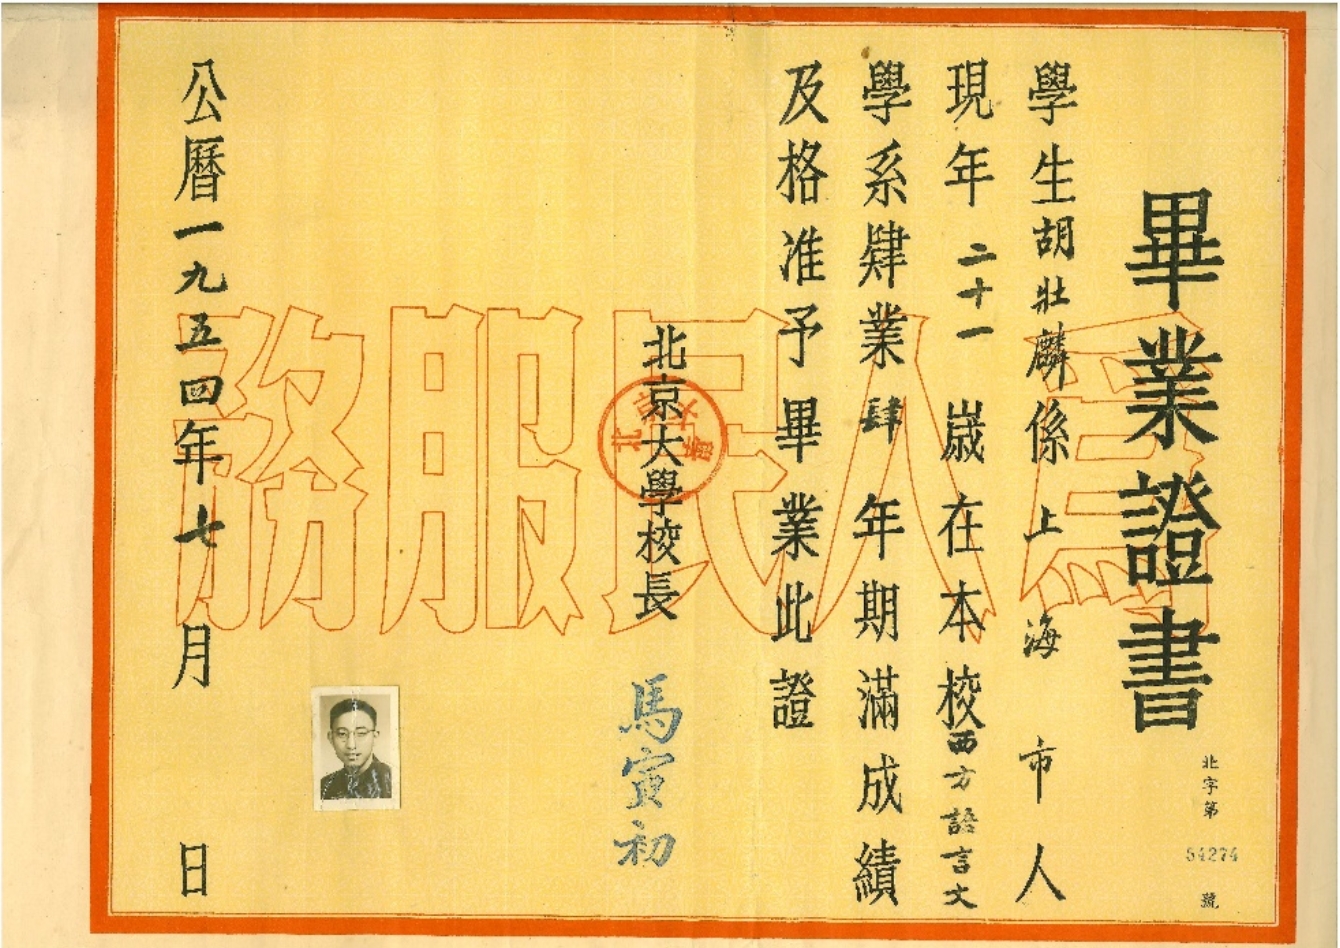 畢業證書
北字第54274號
學生胡壯麟係上海市人
現年二十一歲在本校西方語言文
學系肄業肆年期滿成績
及格准予畢業此證
北京大學校長 馬寅初
北京大學
公曆一九五四年七月 日
爲人民服務